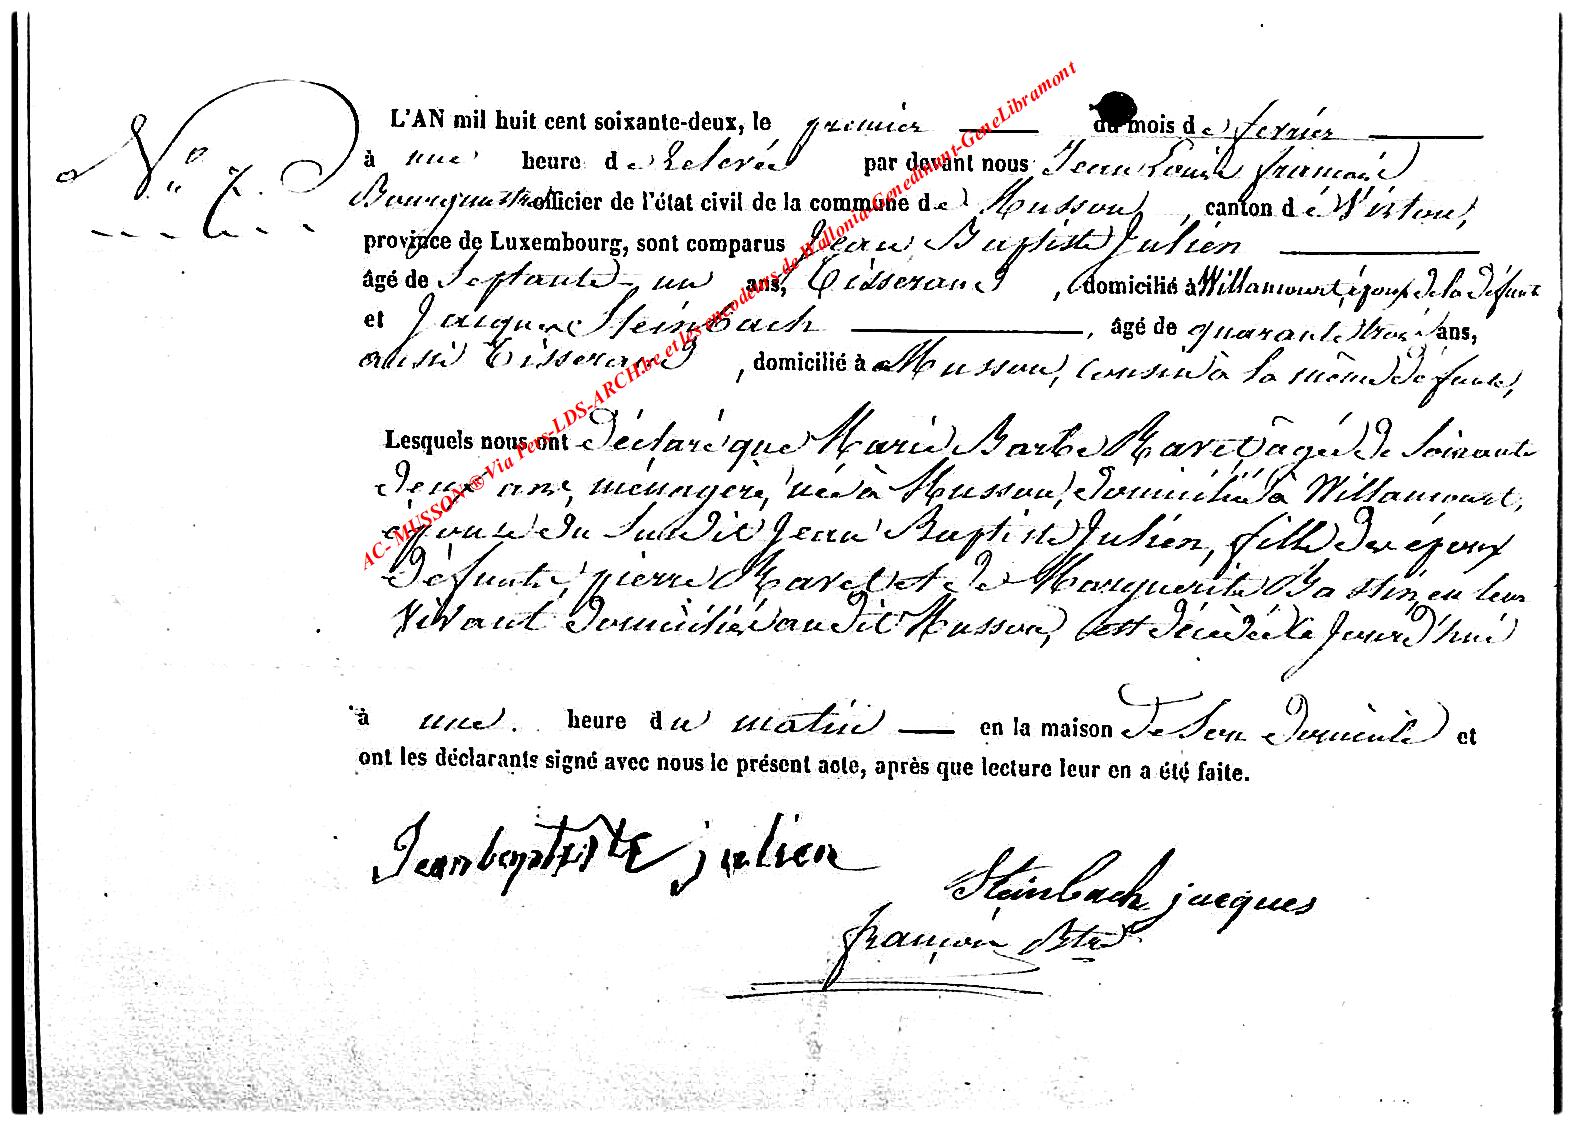 N° 7.
L'AN mil huit cent soixante-deux, le premier du mois de fevrier
à une heure de Relevée par devant nous Jean Louis françois
Bourgmestre officier de l'état civil de la commune de Musson, canton de Virton,
province de Luxembourg, sont comparus Jean Baptiste Julien
âgé de Septante-un ans, Tisserand, domicilié à Willancourt, époux de la défunte
et Jacques Steinbach, âgé de quarante trois ans,
aussi Tisserand, domicilié à Musson, cousin à la même défunte,
Lesquels nous ont déclaré que Marie Barbe Ravet âgée de soixante
deux ans, ménagère, née à Musson, domiciliée à Willancourt,
épouse du susdit Jean Baptiste Julien, fille des époux
défunts, pierre Ravet et de Marguerite Bastin, en leur
vivant domiciliés audit Musson, est décédée ce jourd'hui
à une heure du matin en la maison de son domicile et
ont les déclarants signé avec nous le présent acte, après que lecture leur en a été faite.
Jean baptiste julien
Steinbach jacques
françois Btre
AC- MUSSON® Via Pers-LDS-ARCH.be et les encodeurs de Wallonia-Genedinant-GeneLibramont